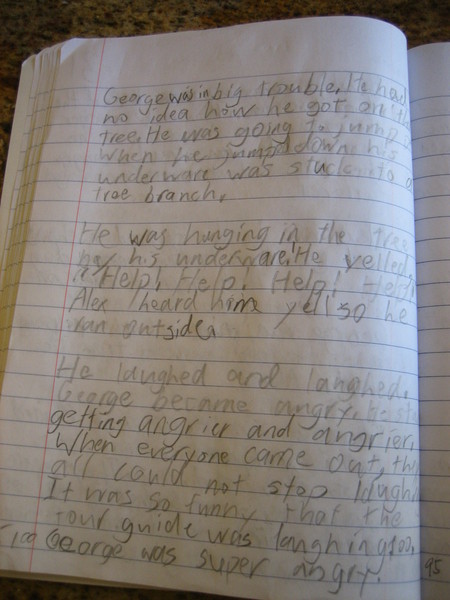 George was in big trouble. He had
no idea how he got on the
tree. He was going to jump
When he jumped down his
underware was stuck to a
tree branch.
He was hunging in the tree
by his underware. He yelled
Help! Help! Help! Help!
Alex heard hime yell so he
ran outside.
He laughed and laughed.
George became angry. He
getting angrier and angrier.
When everyone came out, they
all could not stop laugh
It was so funny that the
tour guide was laughing too.
George was super angry.
95